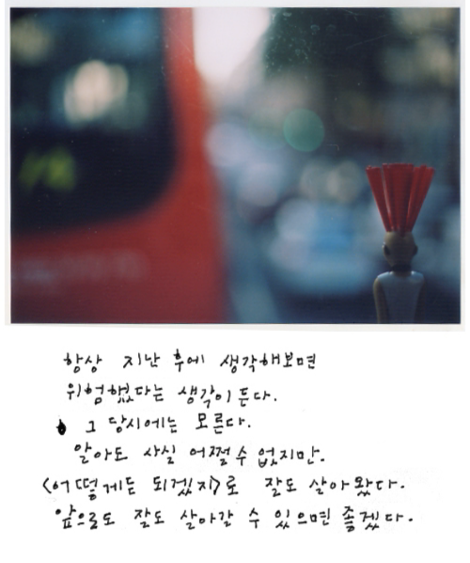 항상 지난 후에 생각해보면
위험했다는 생각이 든다.
그 당시에는 모른다.
알아도 사실 어쩔수 없지만.
<어떻게든 되겠지>로 잘도 살아왔다.
앞으로도 잘도 살아갈 수 있으면 좋겠다.